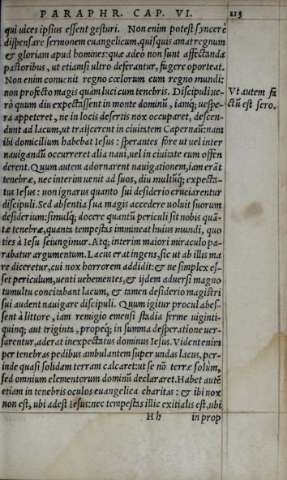 PARAPHR. CAP. VI. 213
qui uices ipsius essent gesturi. Non enim potest syncere
dispensare sermonem euangelicum, quisquis amat regnum
& gloriam apud homines: quæ adeò non sunt affectanda
pastoribus, ut etiamsi ultro deferantur, fugere oporteat.
Non enim conuenit regno cœlorum cum regno mundi:
non profecto magis quam luci cum tenebris. Discipuli ue-
rò quum diu expectassent in monte dominũ, iamq́; uespe-
ra appeteret, ne in locis desertis nox occuparet, descen-
dunt ad lacum, ut traijcerent in ciuitatem Capernaũ: nam
ibi domicilium habebat Iesus: sperantes fore ut uel inter
nauigandũ occurreret alia naui, uel in ciuitate eum offen
derent. Quum autem adornarent nauigationem, iam erãt
tenebræ, nec interim uenit ad suos, diu multũq́; expecta-
tus Iesus: non ignarus quanto sui desiderio cruciarentur
discipuli. Sed absentia sua magis accedere uoluit suorum
desiderium: simulq́; docere quantũ periculi sit nobis quã-
tæ tenebræ, quanta tempestas immineat huius mundi, quo
ties à Iesu seiungimur. Atq; interim maiori miraculo pa-
rabatur argumentum. Lacus erat ingens, sic ut ab illis ma
re diceretur, cui nox horrorem addidit: & ne simplex es-
set periculum, uenti uehementes, & ijdem aduersi magno
tumultu concitabant lacum, & tamen desiderio magistri
sui audent nauigare discipuli. Quum igitur procul abes-
sent à littore, iam remigio emensi stadia ferme uiginti-
quinq;, aut triginta, propeq́; in summa desperatione uer-
sarentur, aderat inexpectatus dominus Iesus. Vident enim
per tenebras pedibus ambulantem super undas lacus, per-
inde quasi solidam terram calcaret: ut se nõ terræ solùm,
sed omnium elementorum dominũ declararet. Habet autẽ
etiam in tenebris oculos euangelica charitas: & ibi nox
non est, ubi adest Iesus: nec tempestas illic exitialis est, ubi
H h in prop
Vt autem fa
ctũ est sero.